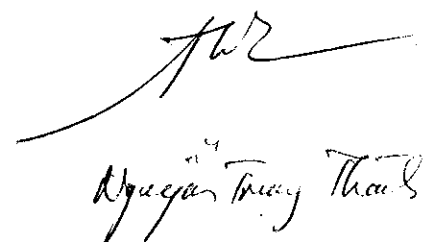 Nguyễn Trung Thành